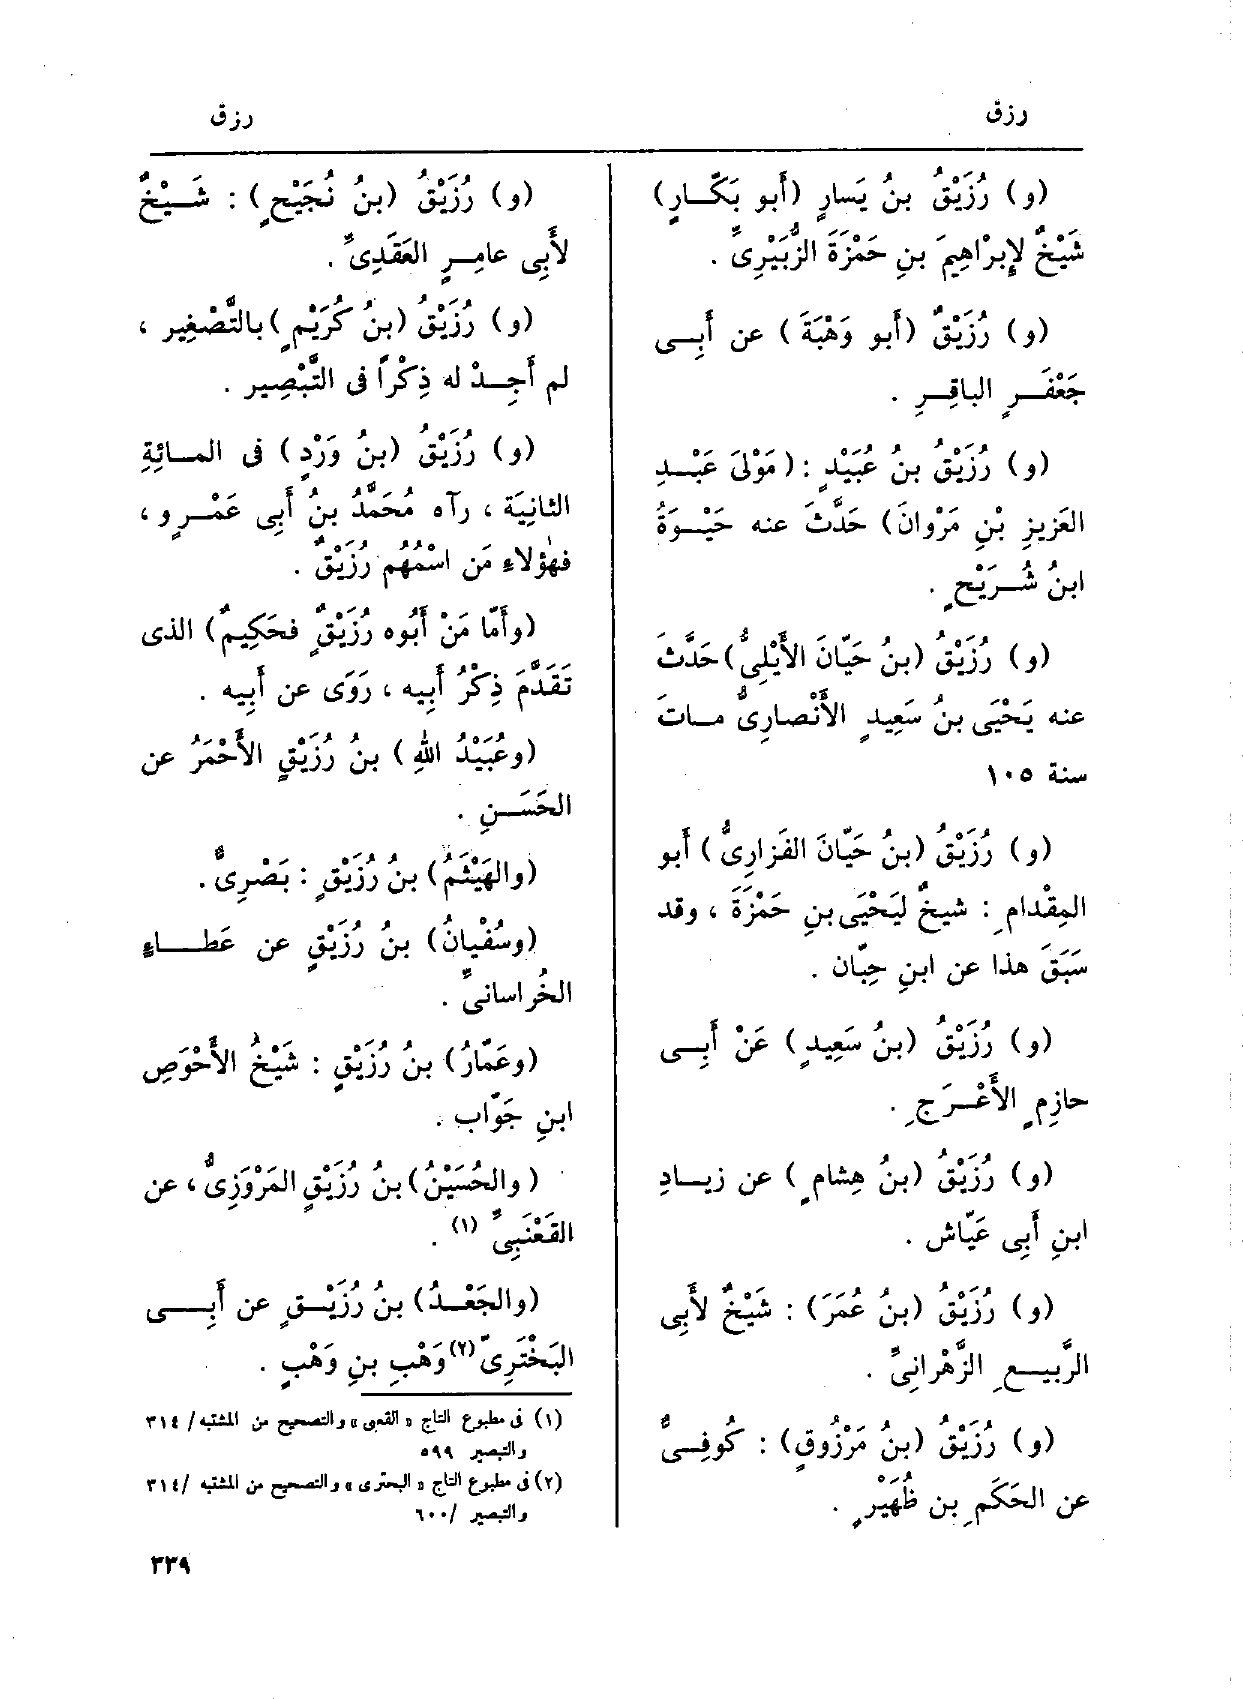 رزق
رزق
(و) رُزَيْقُ بنُ يَسارٍ (أَبو بَكّــارٍ)
شَيْخٌ لإِبرْاهِيمَ بنِ حَمْزَةَ الزُّبَيْرِىِّ .
(و) رُزَيْقٌ (أَبو وَهْبَةَ) عن أَبِــى
جَعْفَــرٍ الباقِـرِ .
(و) رُزَيْقُ بنُ عُبَيْدٍ : (مَوْلَى عَبْــدِ
العَزيزِ بْنِ مَرْوانَ) حَدَّثَ عنه حَيْــوَةُ
ابنُ شُــرَيْحٍ .
(و) رُزَيْقُ (بنُ حَيّانَ الأَيْلِىُّ) حَدَّثَ
عنه يَحْيَى بنُ سَعِيدٍ الأَنْصارِىُّ مـاتَ
سنة ١٠٥
(و) رُزَيْقُ (بنُ حَيّانَ الفَزارِىُّ) أَبو
المِقْدامِ : شيخٌ لِيَحْيَى بنِ حَمْزَةَ ، وقد
سَبَقَ هذا عن ابنِ حِبّان .
(و) رُزَيْقُ (بنُ سَعِيدٍ) عَنْ أَبِــى
حازِمٍ الأَعْــرَجِ .
(و) رُزَيْقُ (بنُ هِشامٍ) عن زيــادِ
ابنِ أَبِى عَيّاش .
(و) رُزَيْقُ (بنُ عُمَرَ) : شَيْخٌ لأَبِى
الرَّبيــعِ الزَّهْرانِىِّ .
(و) رُزَيْقُ (بنُ مَرْزُوقٍ) : كُوفِــىٌّ
عن الحَكَمِ بن ظُهَيْرٍ .
(و) رُزَيْقُ (بنُ نُجَيْحٍ) : شَــيْخٌ
لأَبِى عامِــرٍ العَقَدِىِّ .
(و) رُزَيْقُ (بنُ كُرَيْمٍ) بالتَّصْغِير ،
لم أَجِــدْ له ذِكْرًا فى التَّبْصِير .
(و) رُزَيْقُ (بنُ وَرْدٍ) فى المــائِةِ
الثانِيَة ، رآه مُحَمَّدُ بنُ أَبِى عَمْــرٍو ،
فهٰؤلاءِ مَن اسْمُهُم رُزَيْقٌ .
(وأَمّا مَنْ أَبُوه رُزَيْقٌ فحَكِيمٌ) الذى
تَقَدَّمَ ذِكْرُ أَبِيه ، رَوَى عن أَبِيه .
(وعُبَيْدُ اللهِ) بنُ رُزَيْقٍ الأَحْمَرُ عن
الحَسَــنِ .
(والهَيْثَمُ) بنُ رُزَيْقٍ : بَصْرِىٌّ .
(وسُفْيانُ) بنُ رُزَيْقٍ عن عَطــاءٍ
الخُراسانىِّ .
(وعَمّارُ) بنُ رُزَيْقٍ : شَيْخُ الأَحْوَصِ
ابنِ جَوّاب .
(والحُسَيْنُ) بنُ رُزَيْقٍ المَرْوَزِىُّ ، عن
القَعْنَبِىِّ (١) .
(والجَعْــدُ) بنُ رُزَيْــقٍ عن أَبِــى
البَخْتَرِىِّ (٢) وَهْبِ بنِ وَهْبٍ .
(١) فى مطبوع التاج « القعى » والتصحيح من المشتبه / ٣١٤
والتبصير ٥٩٩
(٢) فى مطبوع التاج « البحترى » والتصحيح من المشتبه /٣١٤
والتبصير /٦٠٠
٣٣٩